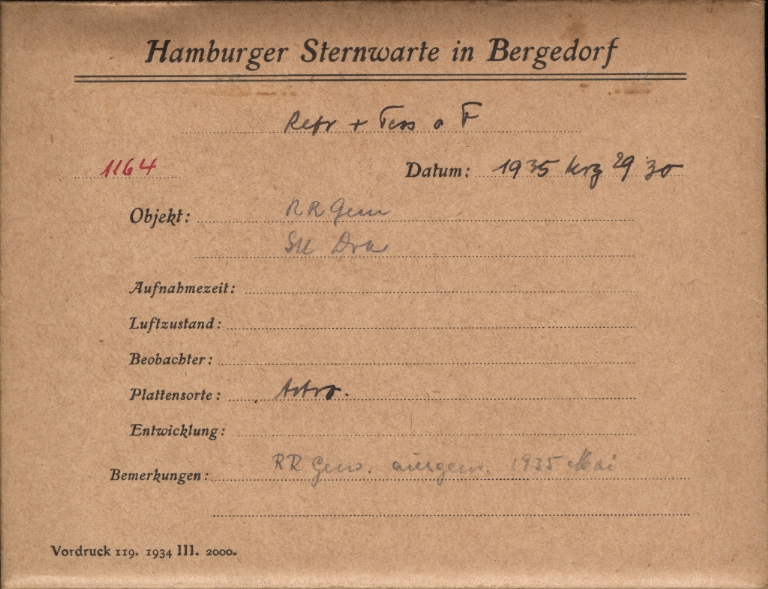 Hamburger Sternwarte in Bergedorf
Refr + Tess o F
1164 Datum: 1935 März 29 30
Objekt: RR Gem
SU Dra
Aufnahmezeit:
Luftzustand:
Beobachter:
Plattensorte: Astro.
Entwicklung:
Bemerkungen: RR Gem. ausgem. 1935 Mai
Vordruck 119. 1934 III. 2000.